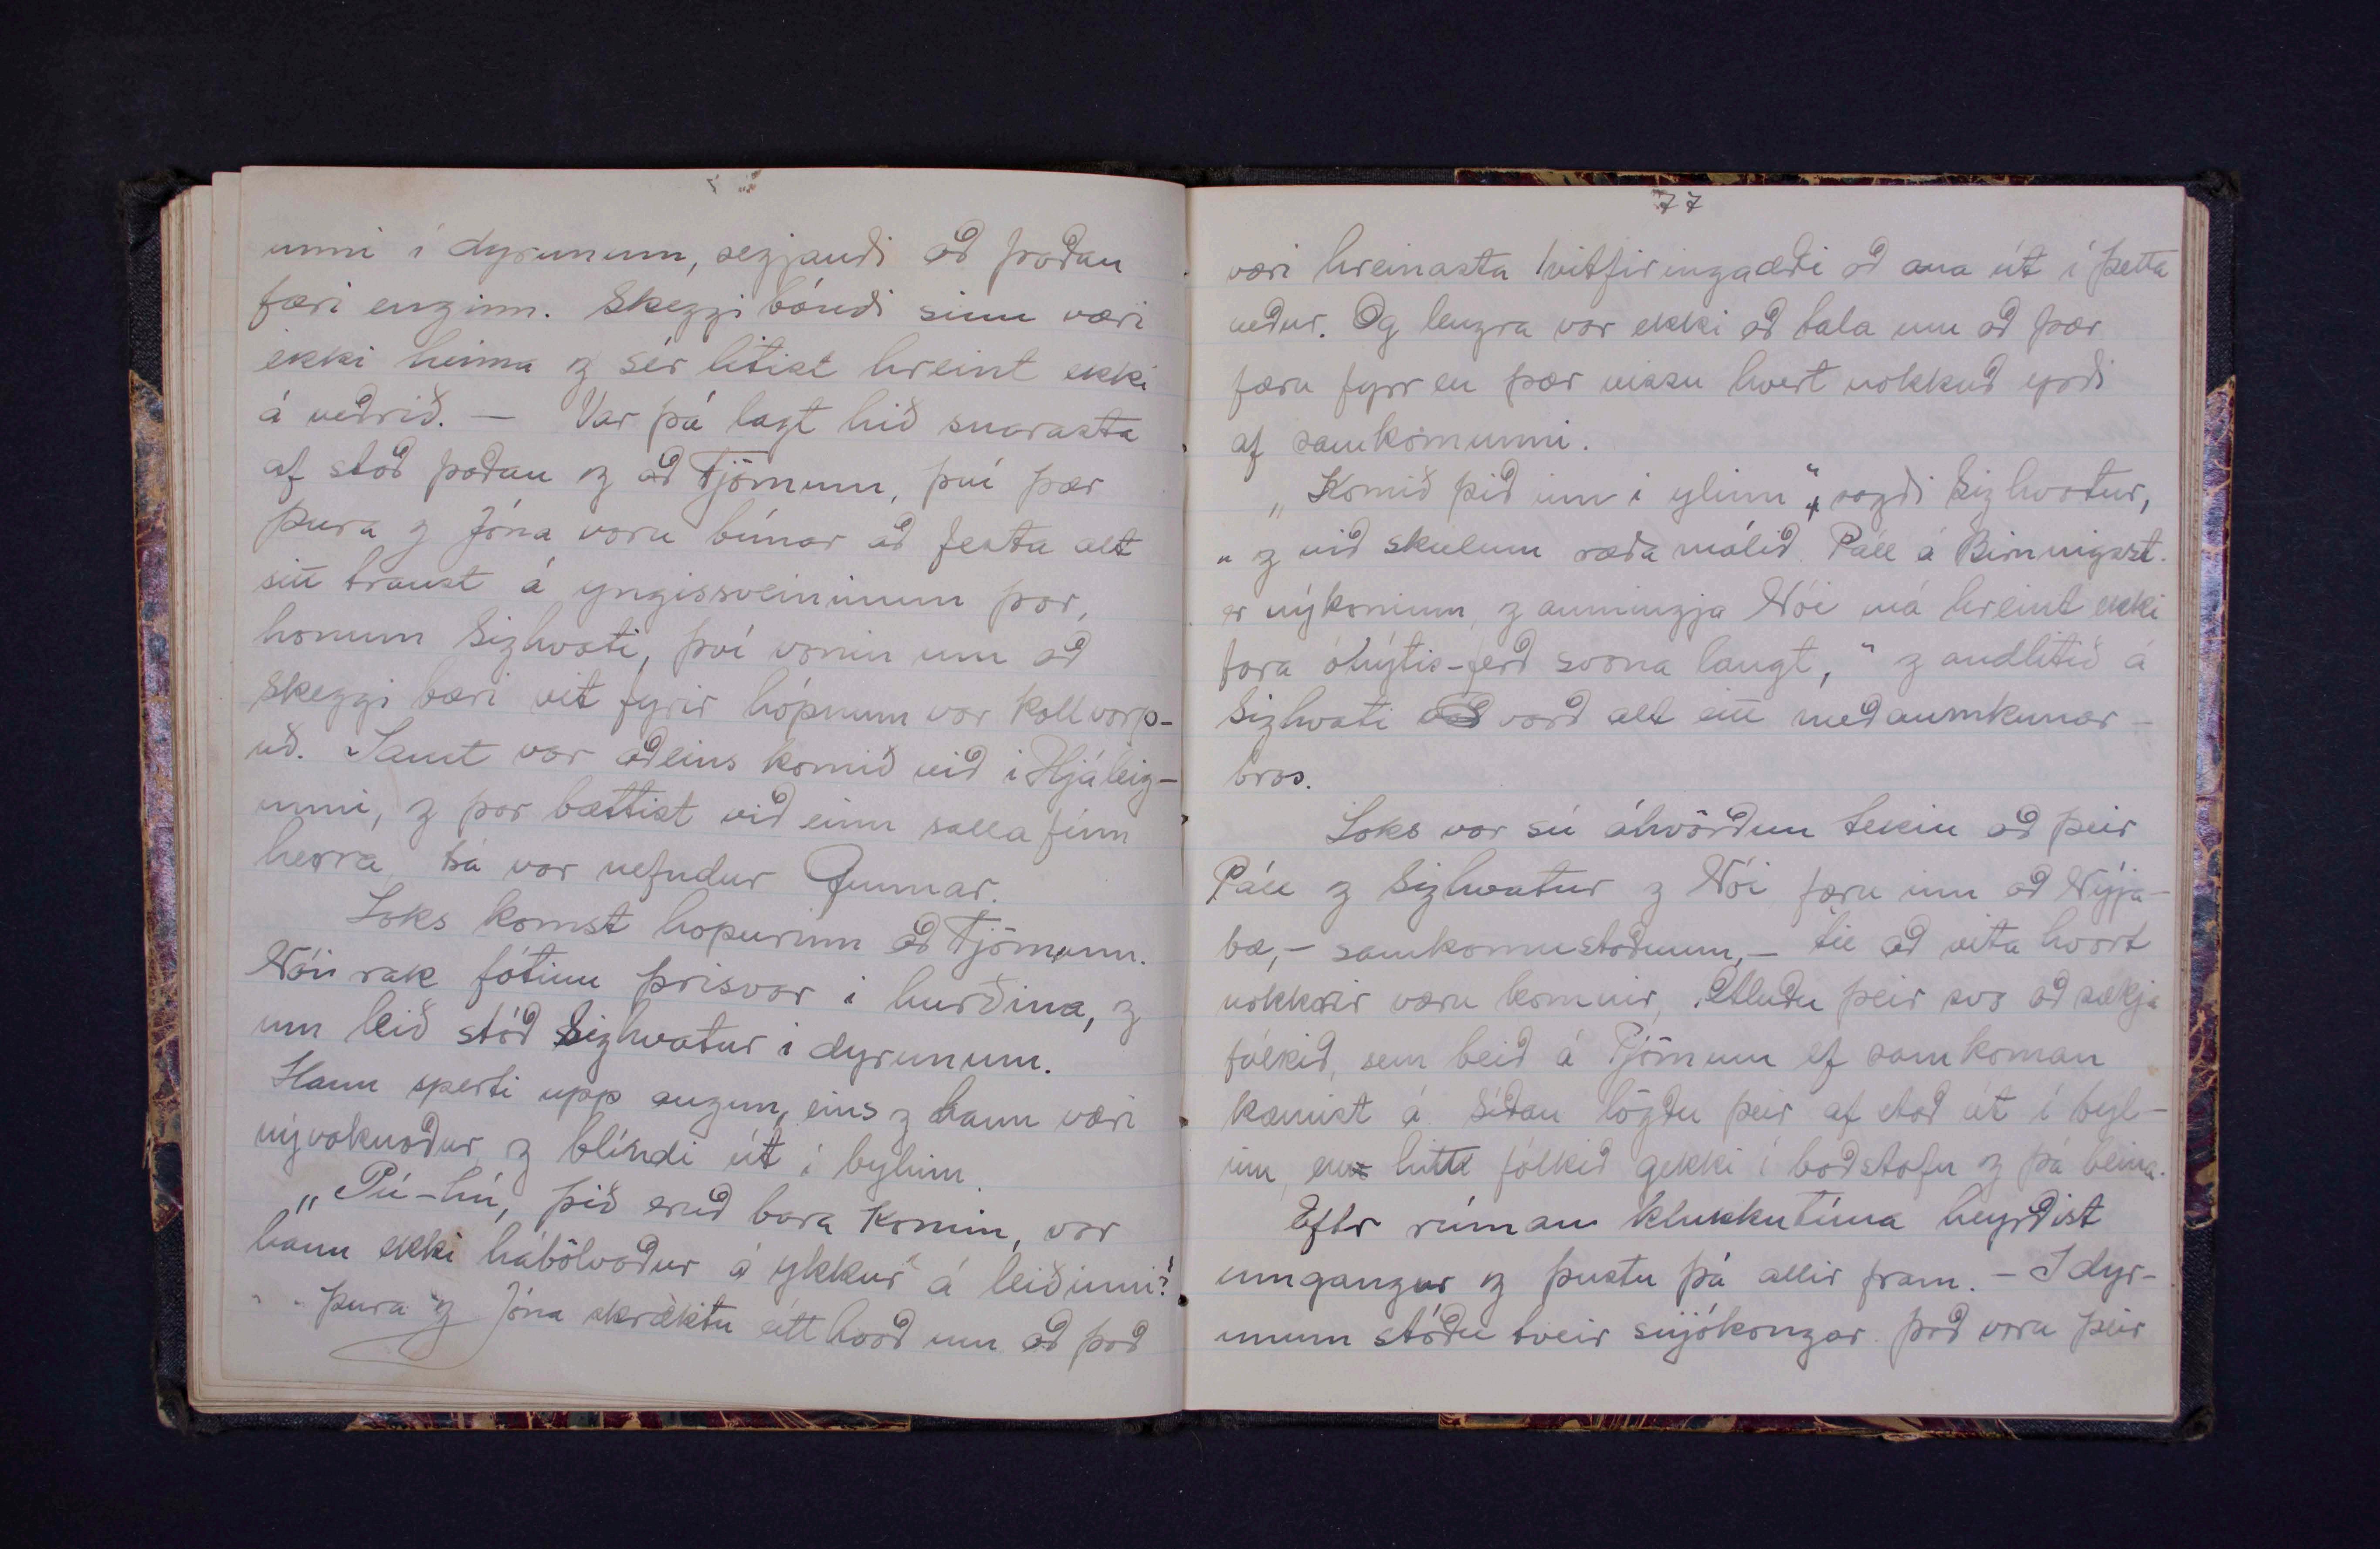 unni í dyrunum, segjandi að þaðan
færi enginn. Skeggi bóndi sinn væri
ekki heima og sér litist hreint ekki
á veðrið. — Var þá lagt hið snarasta
af stað þaðan og að Tjörnum, því þær
Þura og Jóna voru búnar að festa alt
sitt traust á yngissveininum þar,
honum Sighvati, því vonin um að
Skeggi bæri vit fyrir hópnum var kollvarp-
uð. Samt var aðeins komið við í Hjáleig-
unni, og þar bættist við einn salla fínn
herra sá var nefndur Gunnar.
Loks komst hopurinn að Tjörnum.
Nói rak fótinn þrisvar í hurðina, og
um leið stóð Sighvatur í dyrunum.
Hann sperti upp augun, eins og hann væri
nývaknaður og blíndi út í bylinn.
„Pú-hú, þið eruð bara komin, var
hann ekki hábölvaður á ykkur á leiðinni?"
Þura og Jóna skræktu átt hvað um að það
77
væri hreinasta vitfiringaæði að ana út í þetta
veður. Og lengra var ekki að tala um að þær
færu fyrr en þær vissu hvert nokkuð yrði
af samkomunni.
„Komið þið inn í ylinn", sagði Sighvatur,
„og við skulum ræða málið. Páll á Birningsst.
er nýkominn, og aumingja Nói má hreint ekki
fara ónýtis-ferð svona langt," og andlitið á
Sighvati varð alt eitt meðaumkunar-
bros.
Loks var sú ákvörðun tekin að þeir
Páll og Sighvatur og Nói færu inn að Nýja-
bæ, - samkomustaðnum, - til að vita hvort
nokkrir væru komnir. Ætluðu þeir svo að sækja
fólkið, sem beið á Tjörnum ef samkoman
kæmist á. Síðan lögðu þeir af stað út í byl-
inn, en hitt fólkið gekk í baðstofu og þá beina.
Eftir rúman klukkutíma heyrðist
umgangur og þustu þá allir fram. - Í dyr-
unum stóðu tveir snjókongar. Það voru þeir